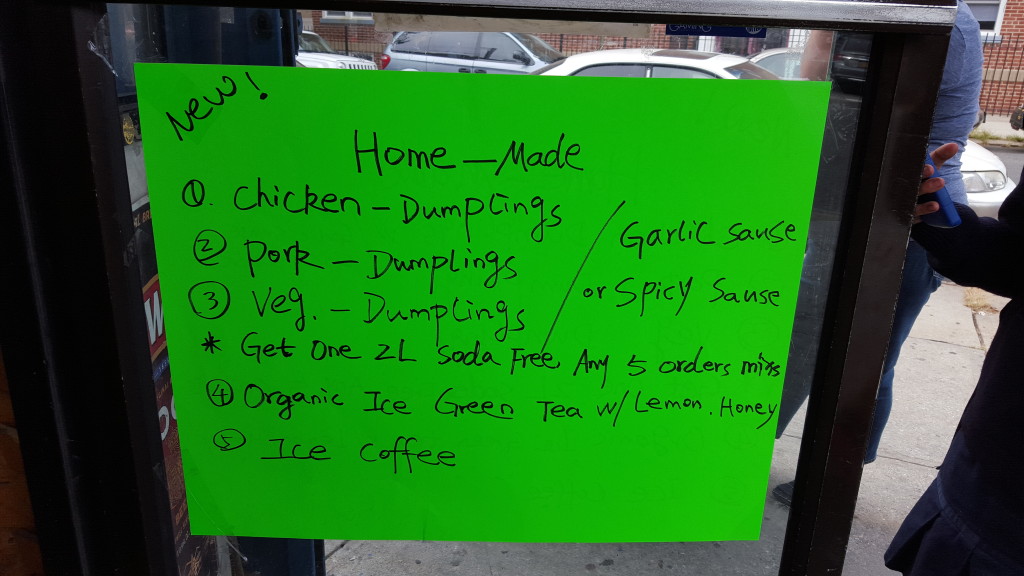 New!
Home-Made
①. Chicken - Dumplings
② Pork - Dumplings
③ Veg. - Dumplings
/ Garlic sause
or Spicy Sause
* Get One 2L Soda Free Any 5 orders mixs
④ Organic Ice Green Tea w/ Lemon. Honey
⑤ Ice Coffee